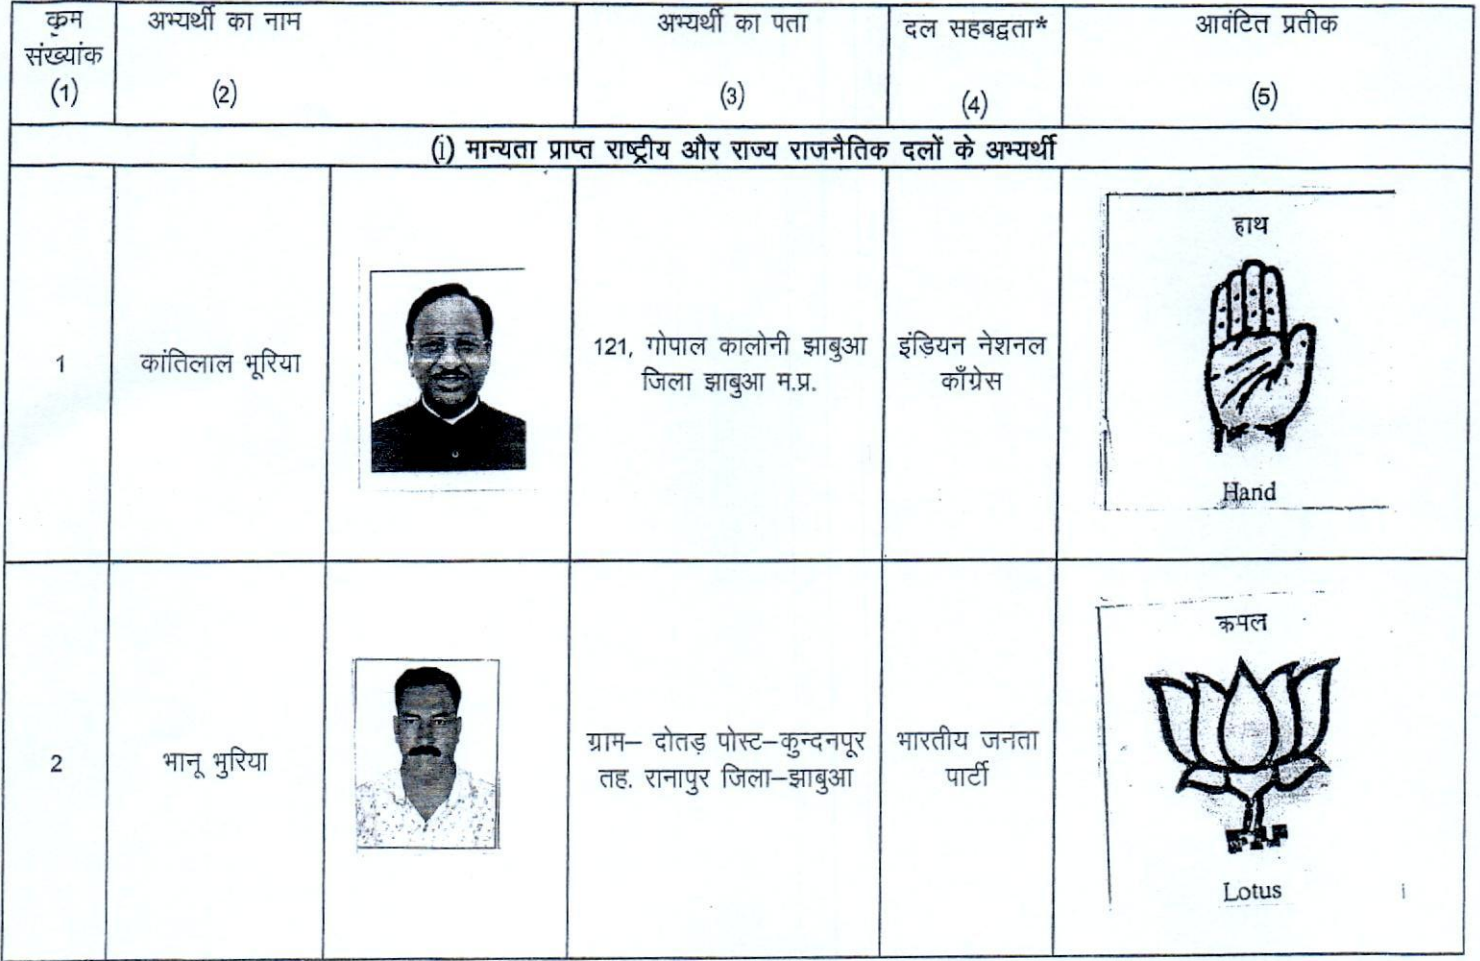 क्रम
संख्यांक
(1)
अभ्यर्थी का नाम
(2)
अभ्यर्थी का पता
(3)
दल सहबद्वता*
(4)
आवंटित प्रतीक
(5)
(i) मान्यता प्राप्त राष्ट्रीय और राज्य राजनैतिक दलों के अभ्यर्थी
1
कांतिलाल भूरिया
121, गोपाल कालोनी झाबुआ
जिला झाबुआ म.प्र.
इंडियन नेशनल
काँग्रेस
हाथ
Hand
2
भानू भुरिया
ग्राम– दोतड़ पोस्ट–कुन्दनपूर
तह. रानापुर जिला–झाबुआ
भारतीय जनता
पार्टी
कमल
Lotus